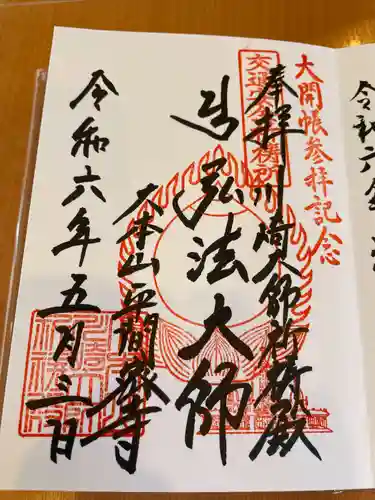 令和六年
大開帳参拝記念
交通安全祈祷所
奉拝 川崎大師祈祷殿
弘法大師
大本山平間寺
令和六年五月三日